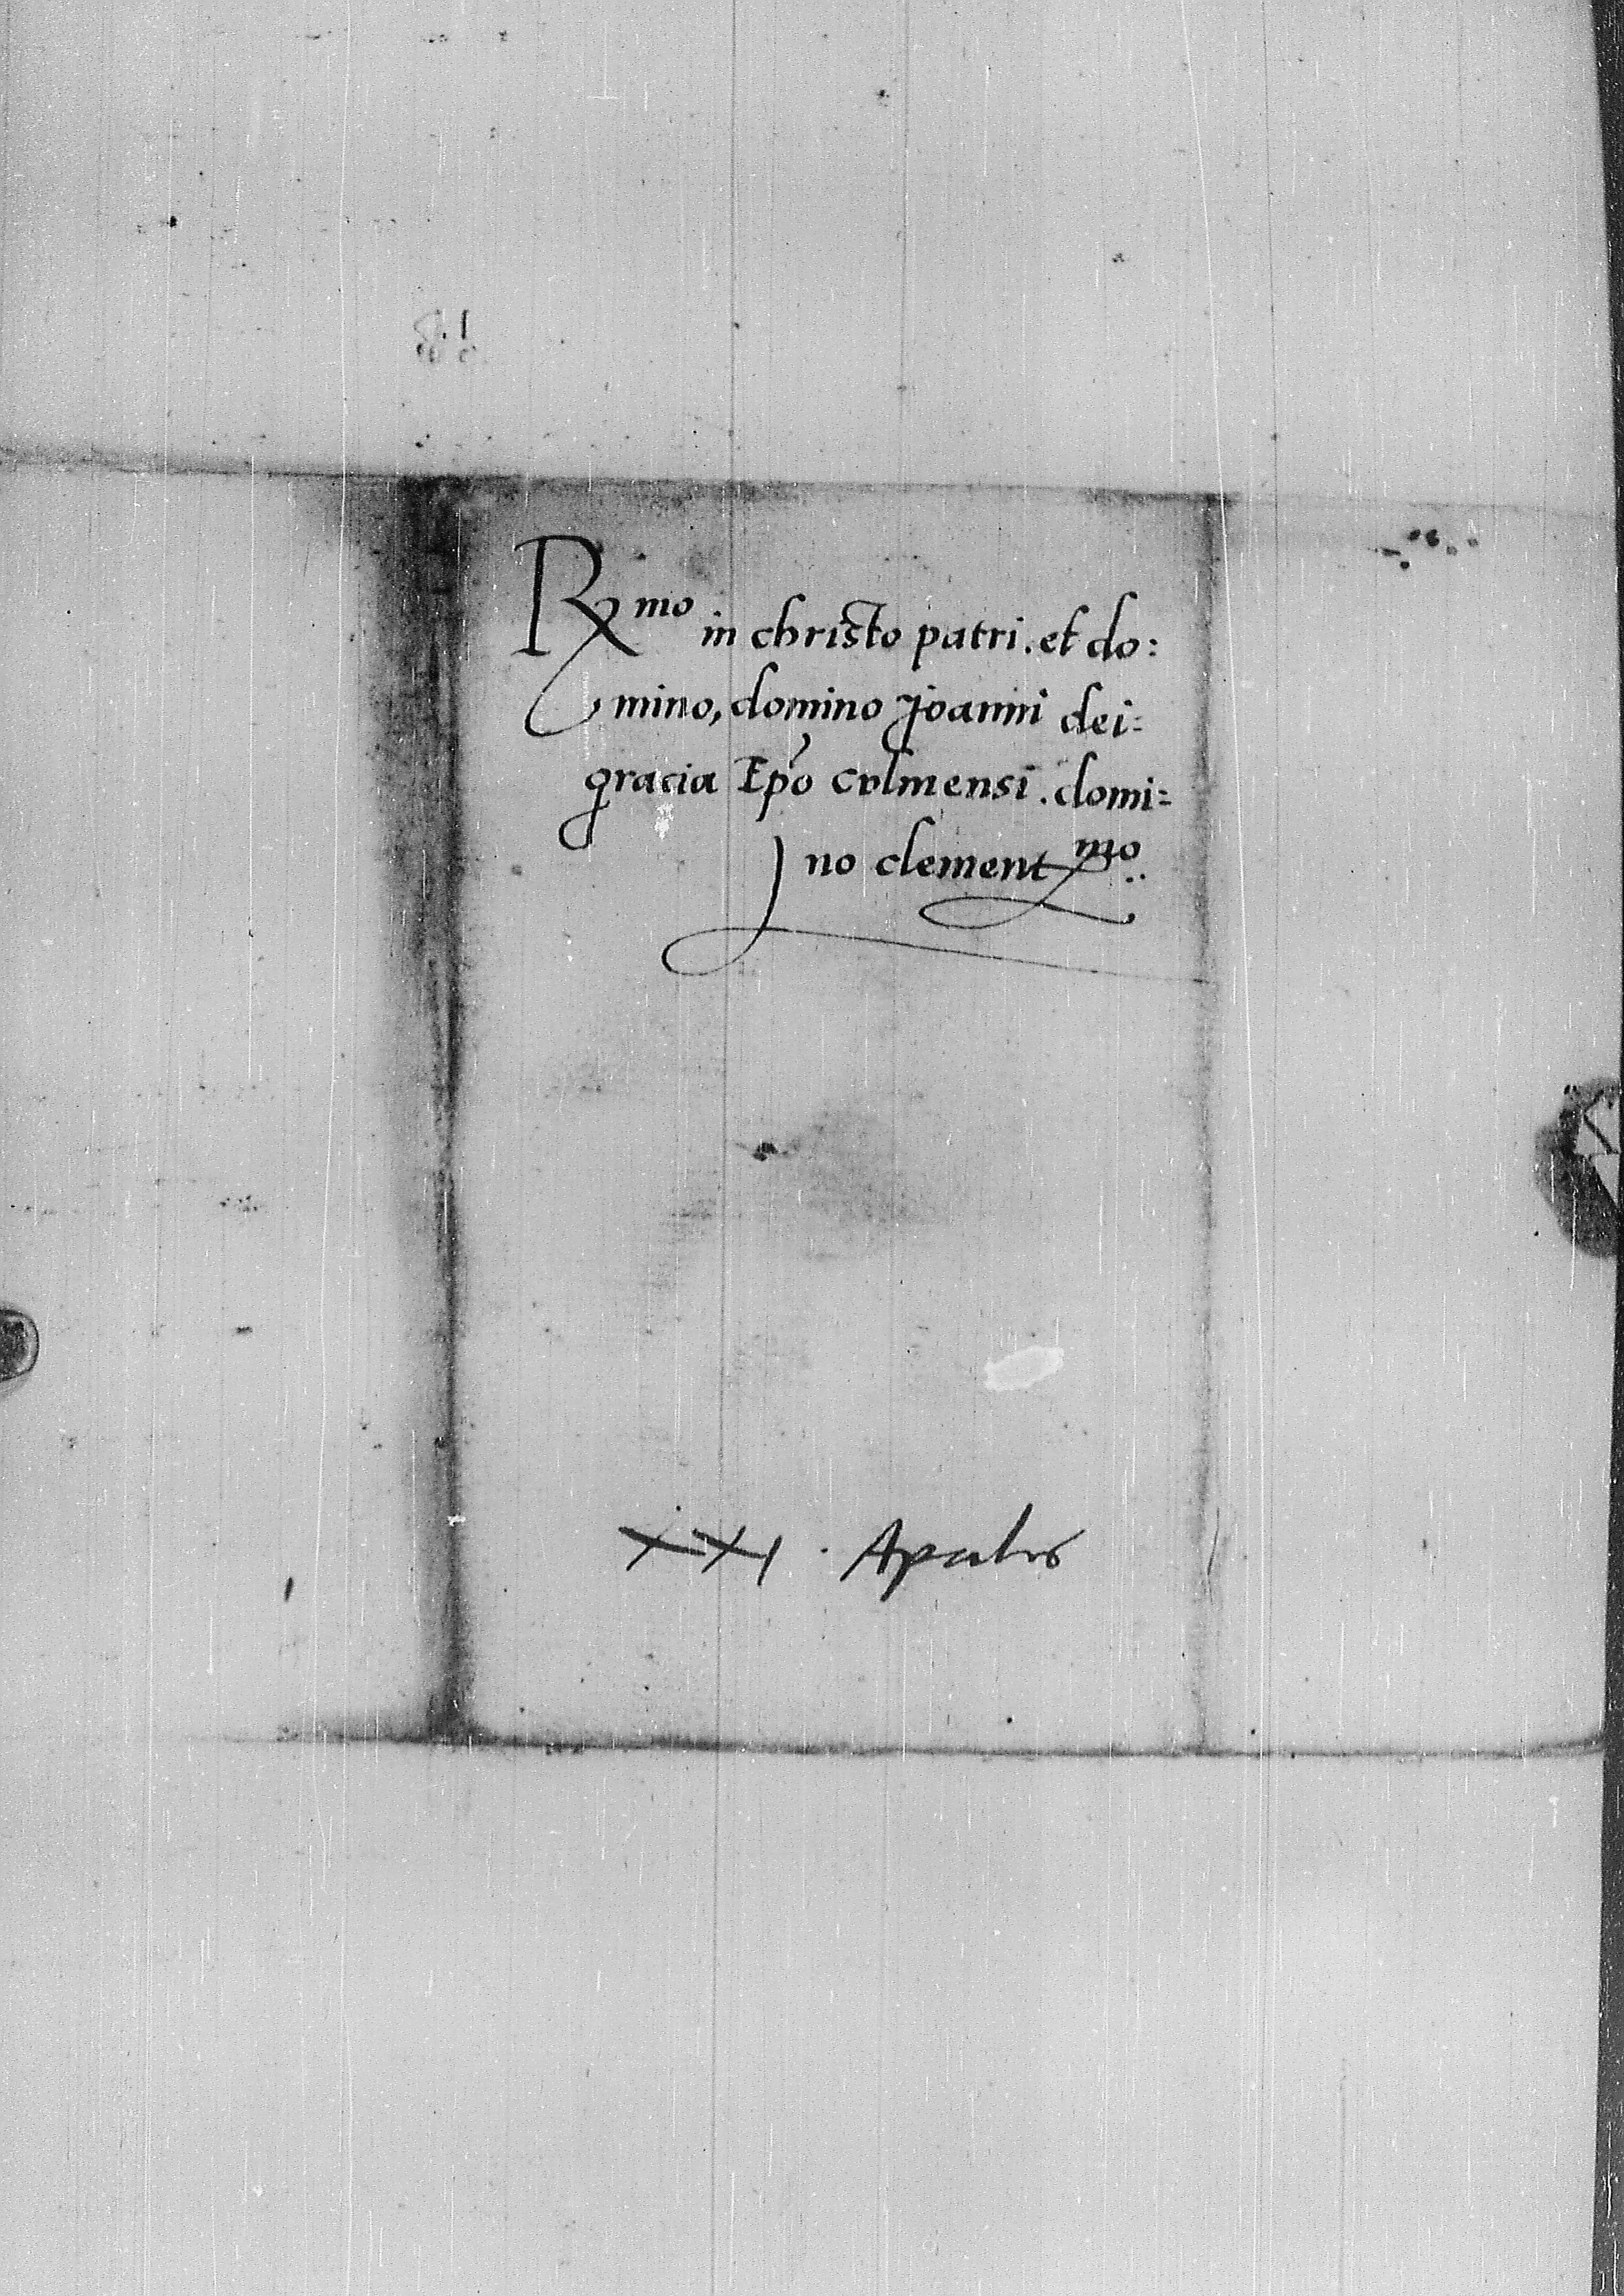 Rmo in christo patri. et do:
mino, domino Joanni dei:
gracia Epo culmensi. domi=
no clementmo..
XXI. Aprilis